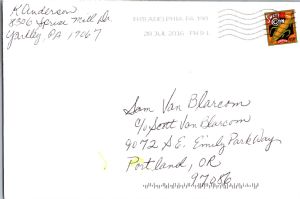 K Anderson
8306 Spruce Mill Dr.
Yardley, PA 19067
PHILADELPHIA PA 190
28 JUL 2016 PM 9 L
Sam Van Blarcom
c/o Scott Van Blarcom
9072 S.E. Emily Park Way
Portland, OR
97086